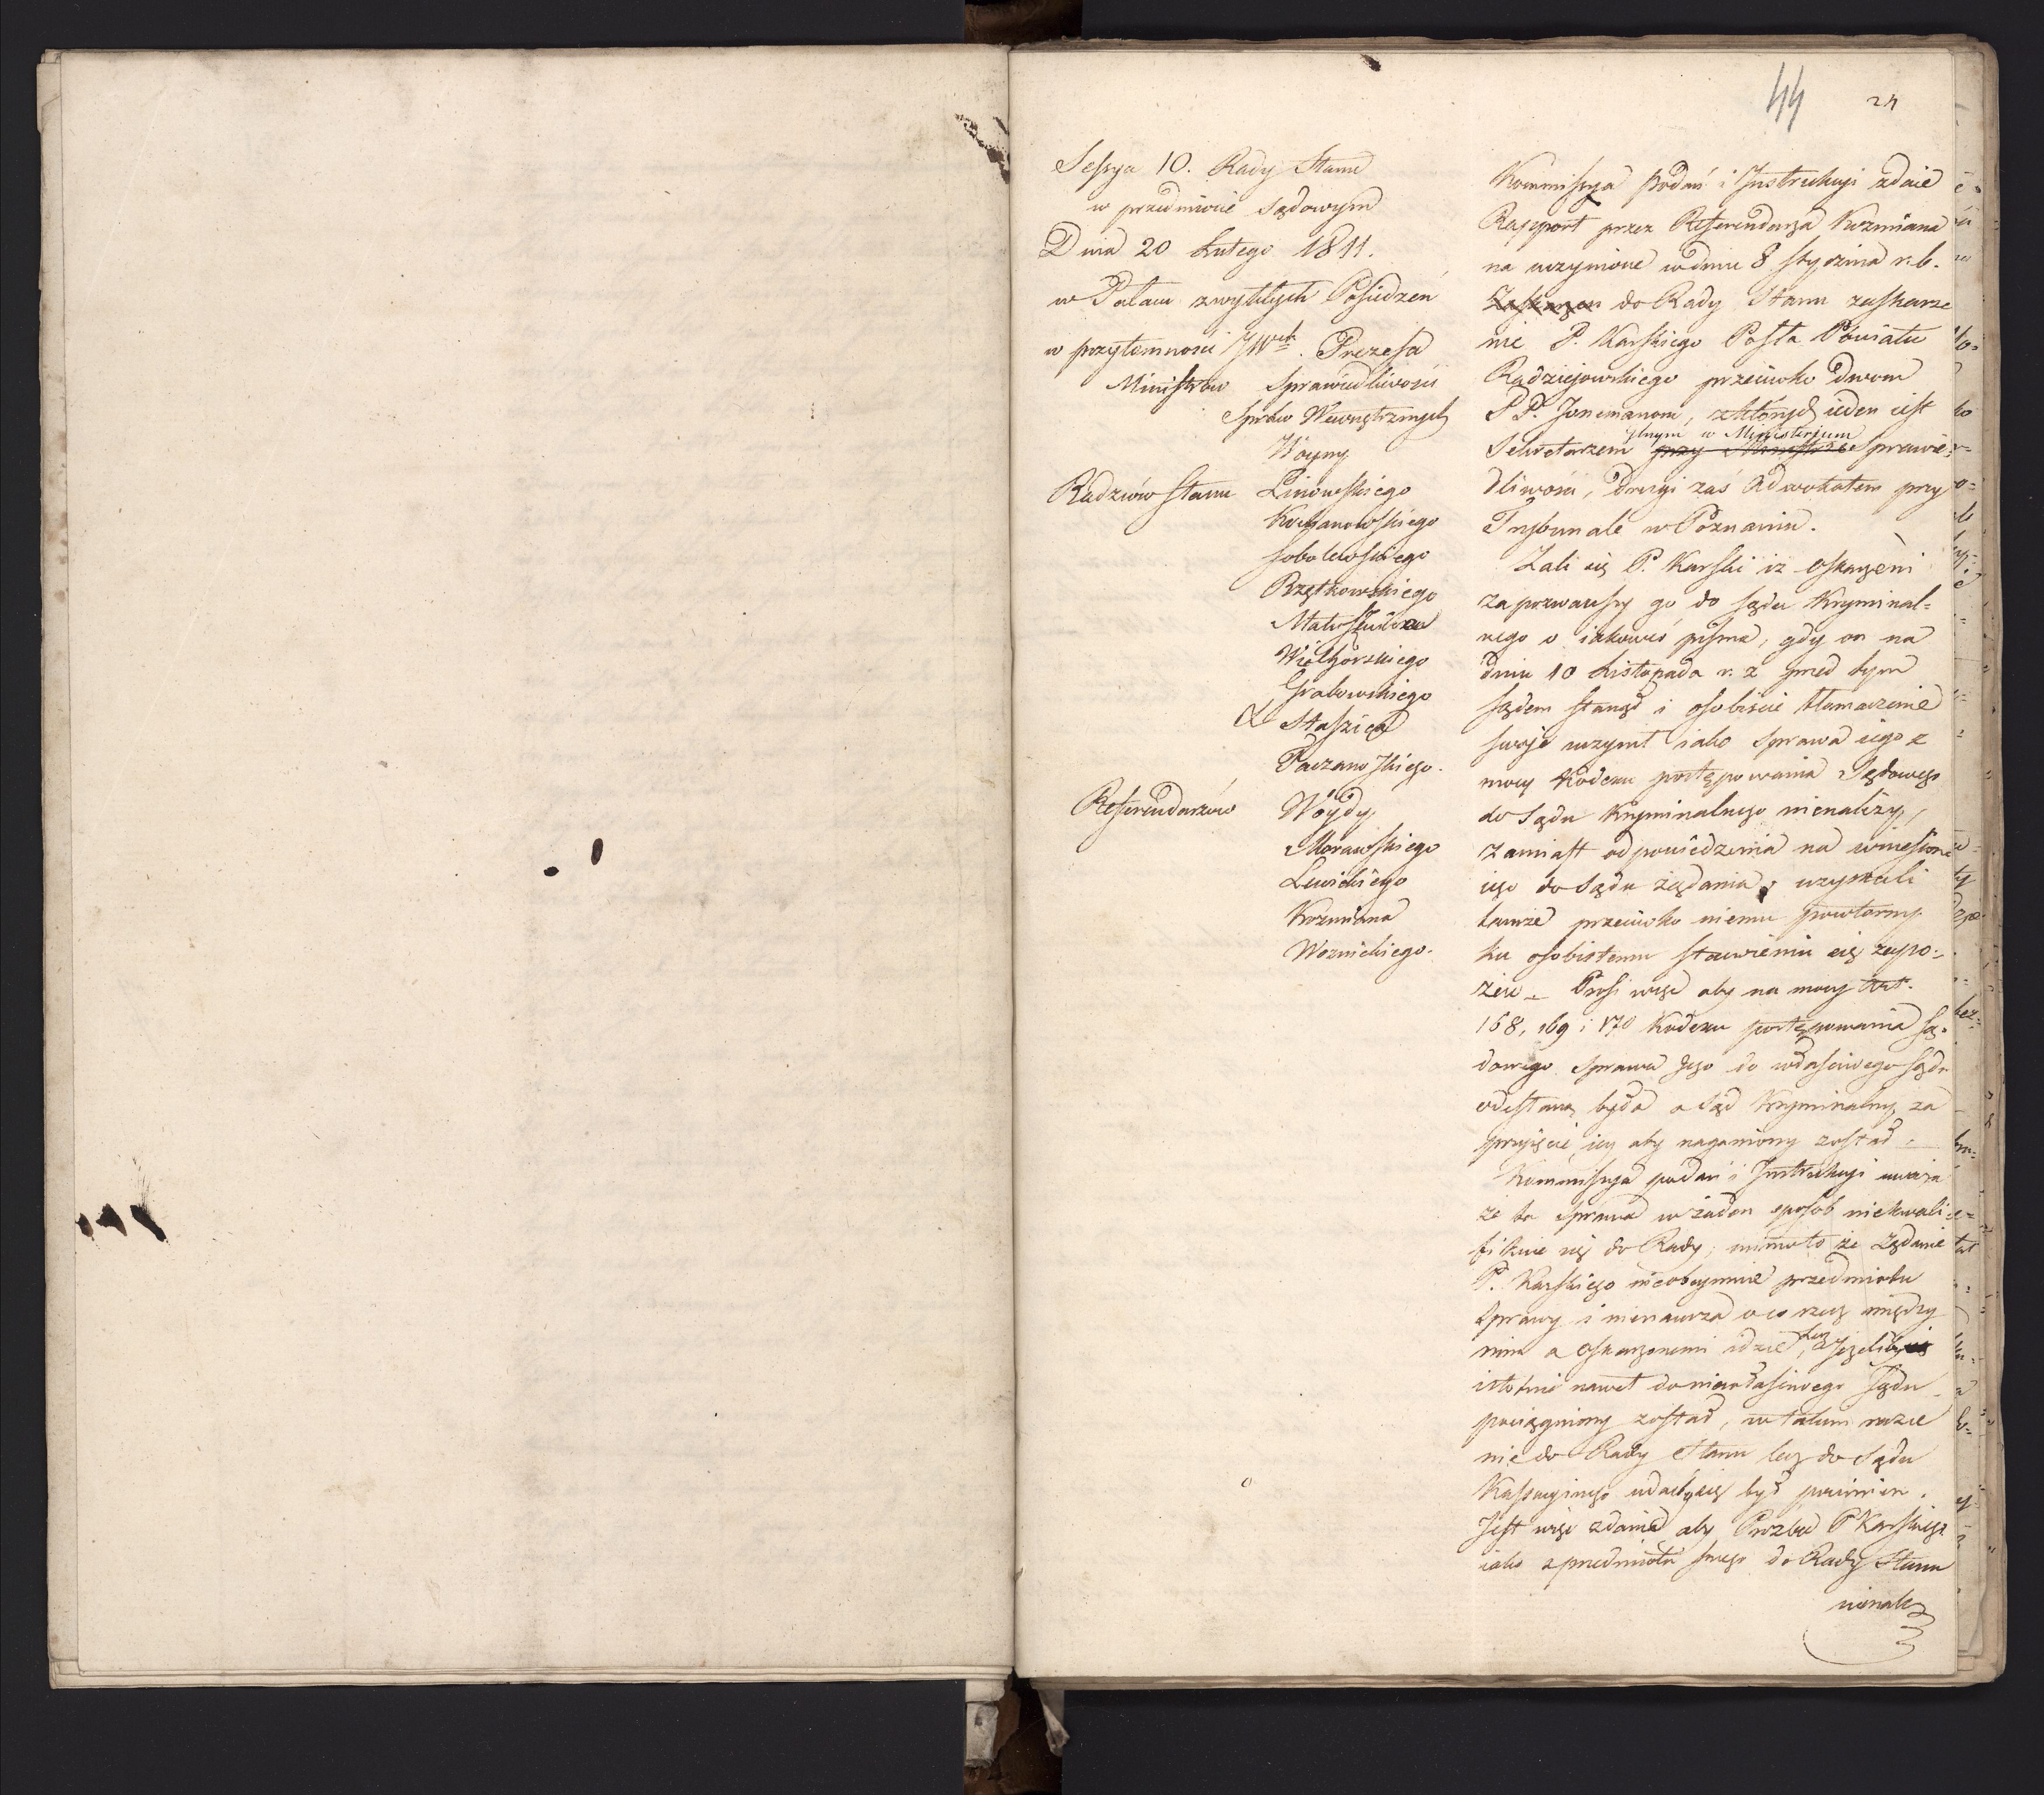 44 24
Sessya 10. Rady Stanu
w przedmiocie sądowym
Dnia 20 Lutego 1811.
w Pałacu zwykłych Posiedzeń
w przytomności JWch. Prezesa
Ministrów Sprawiedliwości
Spraw Wewnętrznych
Woyny
Radzców Stanu Linowskiego
Kochanowskiego
Sobolewskiego
Matuszewica
Wielhorskiego
Grabowskiego
X Staszica
Referendarzów Woydy
Morawskiego
Lewickiego
Kozmiana
Woznickiego.
Kommissya Podań i Instrukcyi zdaie
Rapport przez Referendarza Kozmiana
na uczynione w dniu 8 Stycznia r. b.
do Rady Stanu zaskarze
nie P. Karskiego Posła Powiatu
Radziejowskiego przeciwko dwom
P P. Jonemanom, z których ieden iest
Sekretarzem Jlnym w Ministerjum przy Sprawie
dliwości, drugi zaś Adwokatem przy
Trybunale w Poznaniu.
Żali się P. Karski iż Oskarżeni
zapozwawszy go do Sądu Kryminal=
nego o iakoweś pisma, gdy on na
dniu 10 Listopada r. z przed tym
Sądem stanął i osobiście tłumaczenie
swoje uczynił iako Sprawa iego z
mocy Kodexu postępowania Sądowego
do Sądu Kryminalnego nienależy,
zamiast odpowiedzenia na wniesione
iego do Sądu żądania, uzyskali
tamże przeciwko niemu powtorny
ku osobistemu stawieniu się zapo=
zew – Prosi więc aby na mocy Art.
168, 169 i 170 Kodexu postępowania Są=
dowego Sprawa Jego do właściwego Sądu
odesłaną była a Sąd Kryminalny za
przyięcie iey aby naganiony został.
Kommissya podań i Instrukcyi uważa
że ta Sprawa w żaden sposób niekwali=
fikuie się do Rady; mimo to że żądanie
P. Karskiego nieobeymuie przedmiotu
Sprawy i niewyraża o co rzecz między
nim a Oskarżonemi idzie, lecz Jeżeliby
istotnie nawet do niewłaściwego Sądu
pociągniony został, w takim razie
nie do Rady Stanu lecz do Sądu
Kassacyinego udać się był powinien.
Jest więc zdania aby Prozba P Karskiego
iako z przedmiotu swego do Rady Stanu
nienależ